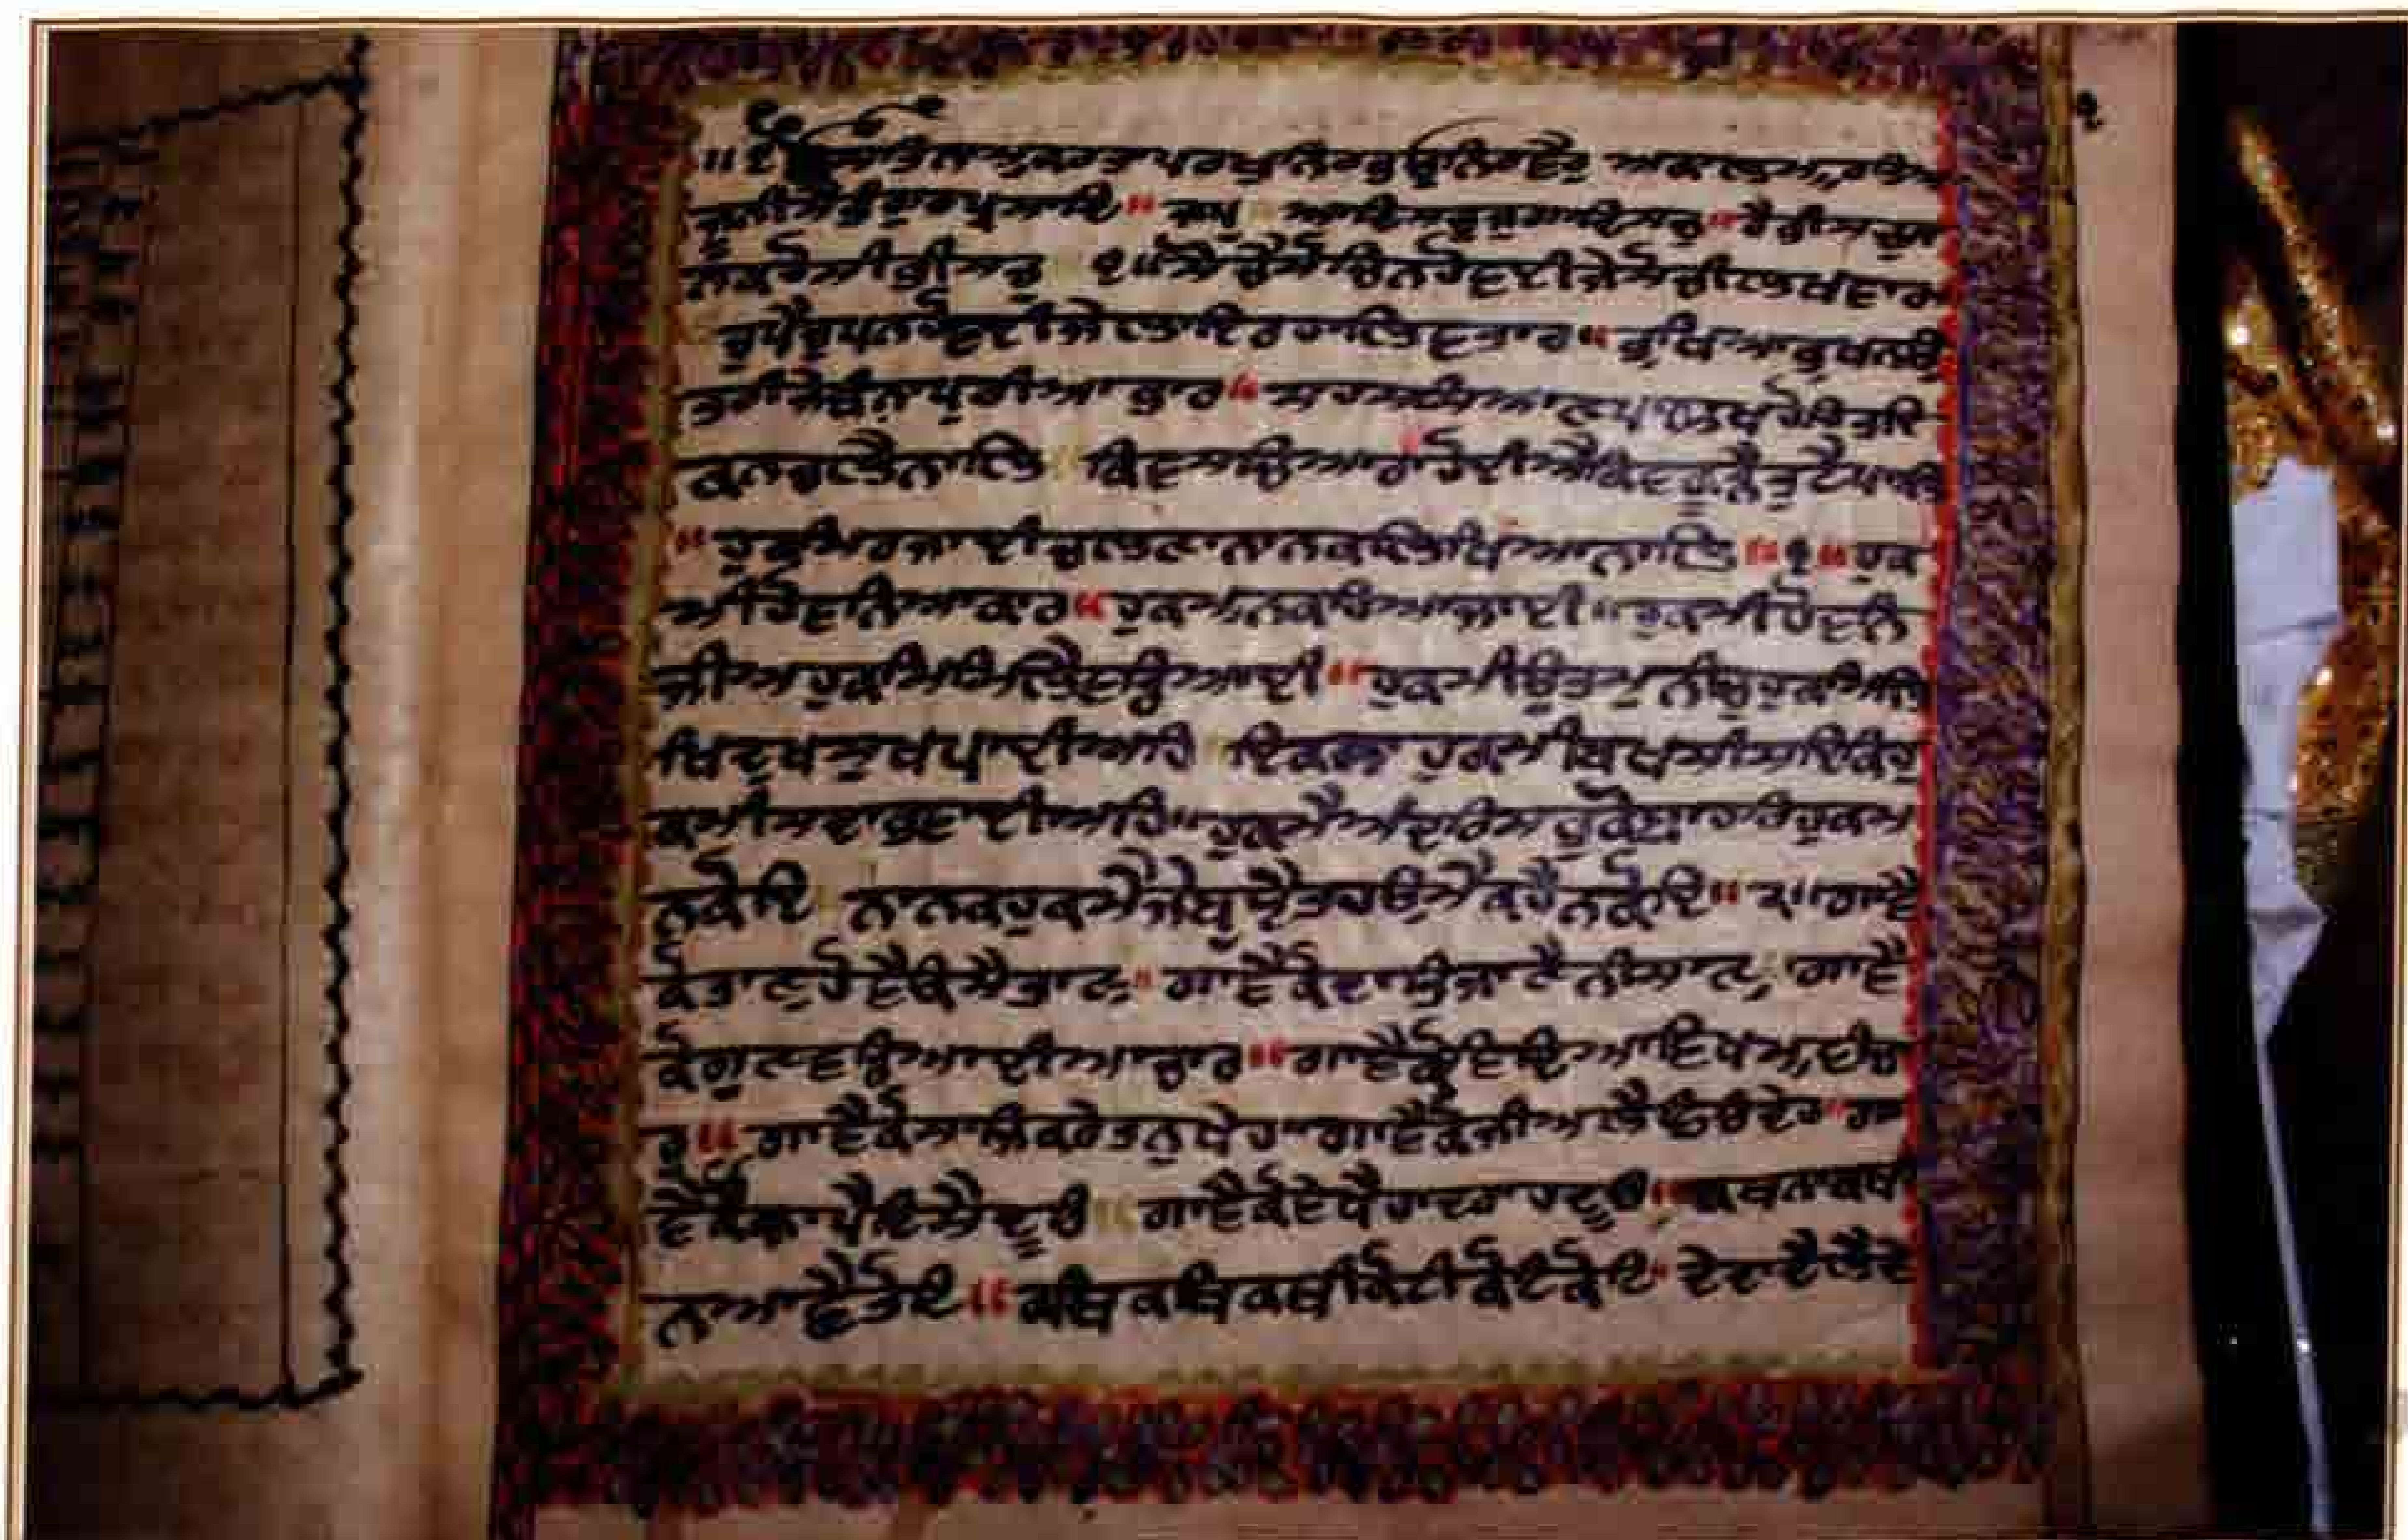 ੧
॥ ੴ ਸਤਿਨਾਮੁਕਰਤਾਪੁਰਖੁਨਿਰਭਉਨਿਰਵੈਰੁ ਅਕਾਲਮੂਰਤਿਅ
ਜੂਨੀਸੈਭੰਗੁਰਪ੍ਰਸਾਦਿ॥ ਜਪੁ ॥ ਆਦਿਸਚੁਜੁਗਾਦਿਸਚੁ॥ਹੈਭੀਸਚੁਨਾ
ਨਕਹੋਸੀਭੀਸਚੁ ੧॥ਸੋਚੈਸੋਚਿਨਹੋਵਈਜੇਸੋਚੀਲਖਵਾਰ
ਚੁਪੈਚੁਪਨਹੋਵਈਜੇਲਾਇਰਹਾਲਿਵਤਾਰ॥ਭੁਖਿਆਭੁਖਨਉ
ਤਰੀਜੇਬੰਨਾਪੁਰੀਆਭਾਰ॥ਸਹਸਸਿਆਣਪਾਲਖਹੋਹਿਤਇ
ਕਨਚਲੈਨਾਲਿ ॥ ਕਿਵਸਚਿਆਰਾਹੋਈਐਕਿਵਕੂੜੈਤੁਟੈਪਾਲਿ
॥ਹੁਕਮਿਰਜਾਈਚਲਣਾਨਾਨਕਲਿਖਿਆਨਾਲਿ॥੧॥ਹੁਕ
ਮੀਹੋਵਨਿਆਕਾਰ॥ਹੁਕਮੁਨਕਹਿਆਜਾਈ॥ਹੁਕਮੀਹੋਵਨਿ
ਜੀਅਹੁਕਮਿਮਿਲੈਵਡਿਆਈ॥ਹੁਕਮੀਉਤਮੁਨੀਚੁਹੁਕਮਿਲਿ
ਖਿਦੁਖਸੁਖਪਾਈਅਹਿ ਇਕਨਾ ਹੁਕਮੀਬਖਸੀਸਇਕਿਹੁ
ਕਮੀਸਦਾਭਵਾਈਅਹਿ॥ਹੁਕਮੈਅੰਦਰਿਸਭੁਕੋਬਾਹਰਿਹੁਕਮ
ਨਕੋਇ ਨਾਨਕਹੁਕਮੈਜੇਬੁਝੈਤਹਉਮੈਕਹੈਨਕੋਇ॥੨॥ਗਾਵੈ
ਕੋਤਾਣੁਹੋਵੈਕਿਸੈਤਾਣੁ॥ਗਾਵੈਕੋਦਾਤਿਜਾਣੈਨੀਸਾਣੁ ਗਾਵੈ
ਕੋਗੁਣਵਡਿਆਈਆਚਾਰ॥ਗਾਵੈਕੋਵਿਦਿਆਵਿਖਮੁਵੀਚਾ
ਰੁ॥ਗਾਵੈਕੋਸਾਜਿਕਰੇਤਨੁਖੇਹ॥ਗਾਵੈਕੋਜੀਅਲੈਫਿਰਿਦੇਹ॥ਗਾ
ਵੈਕੋਜਾਪੈਦਿਸੈਦੂਰਿ ॥ ਗਾਵੈਕੋਵੇਖੈਹਾਦਰਾਹਦੂਰਿ॥ਕਥਨਾਕਥੀ
ਨਆਵੈਤੋਟਿ॥ਕਥਿਕਥਿਕਥੀਕੋਟੀਕੋਟਿਕੋਟਿ॥ਦੇਦਾਦੇਲੈਦੇ